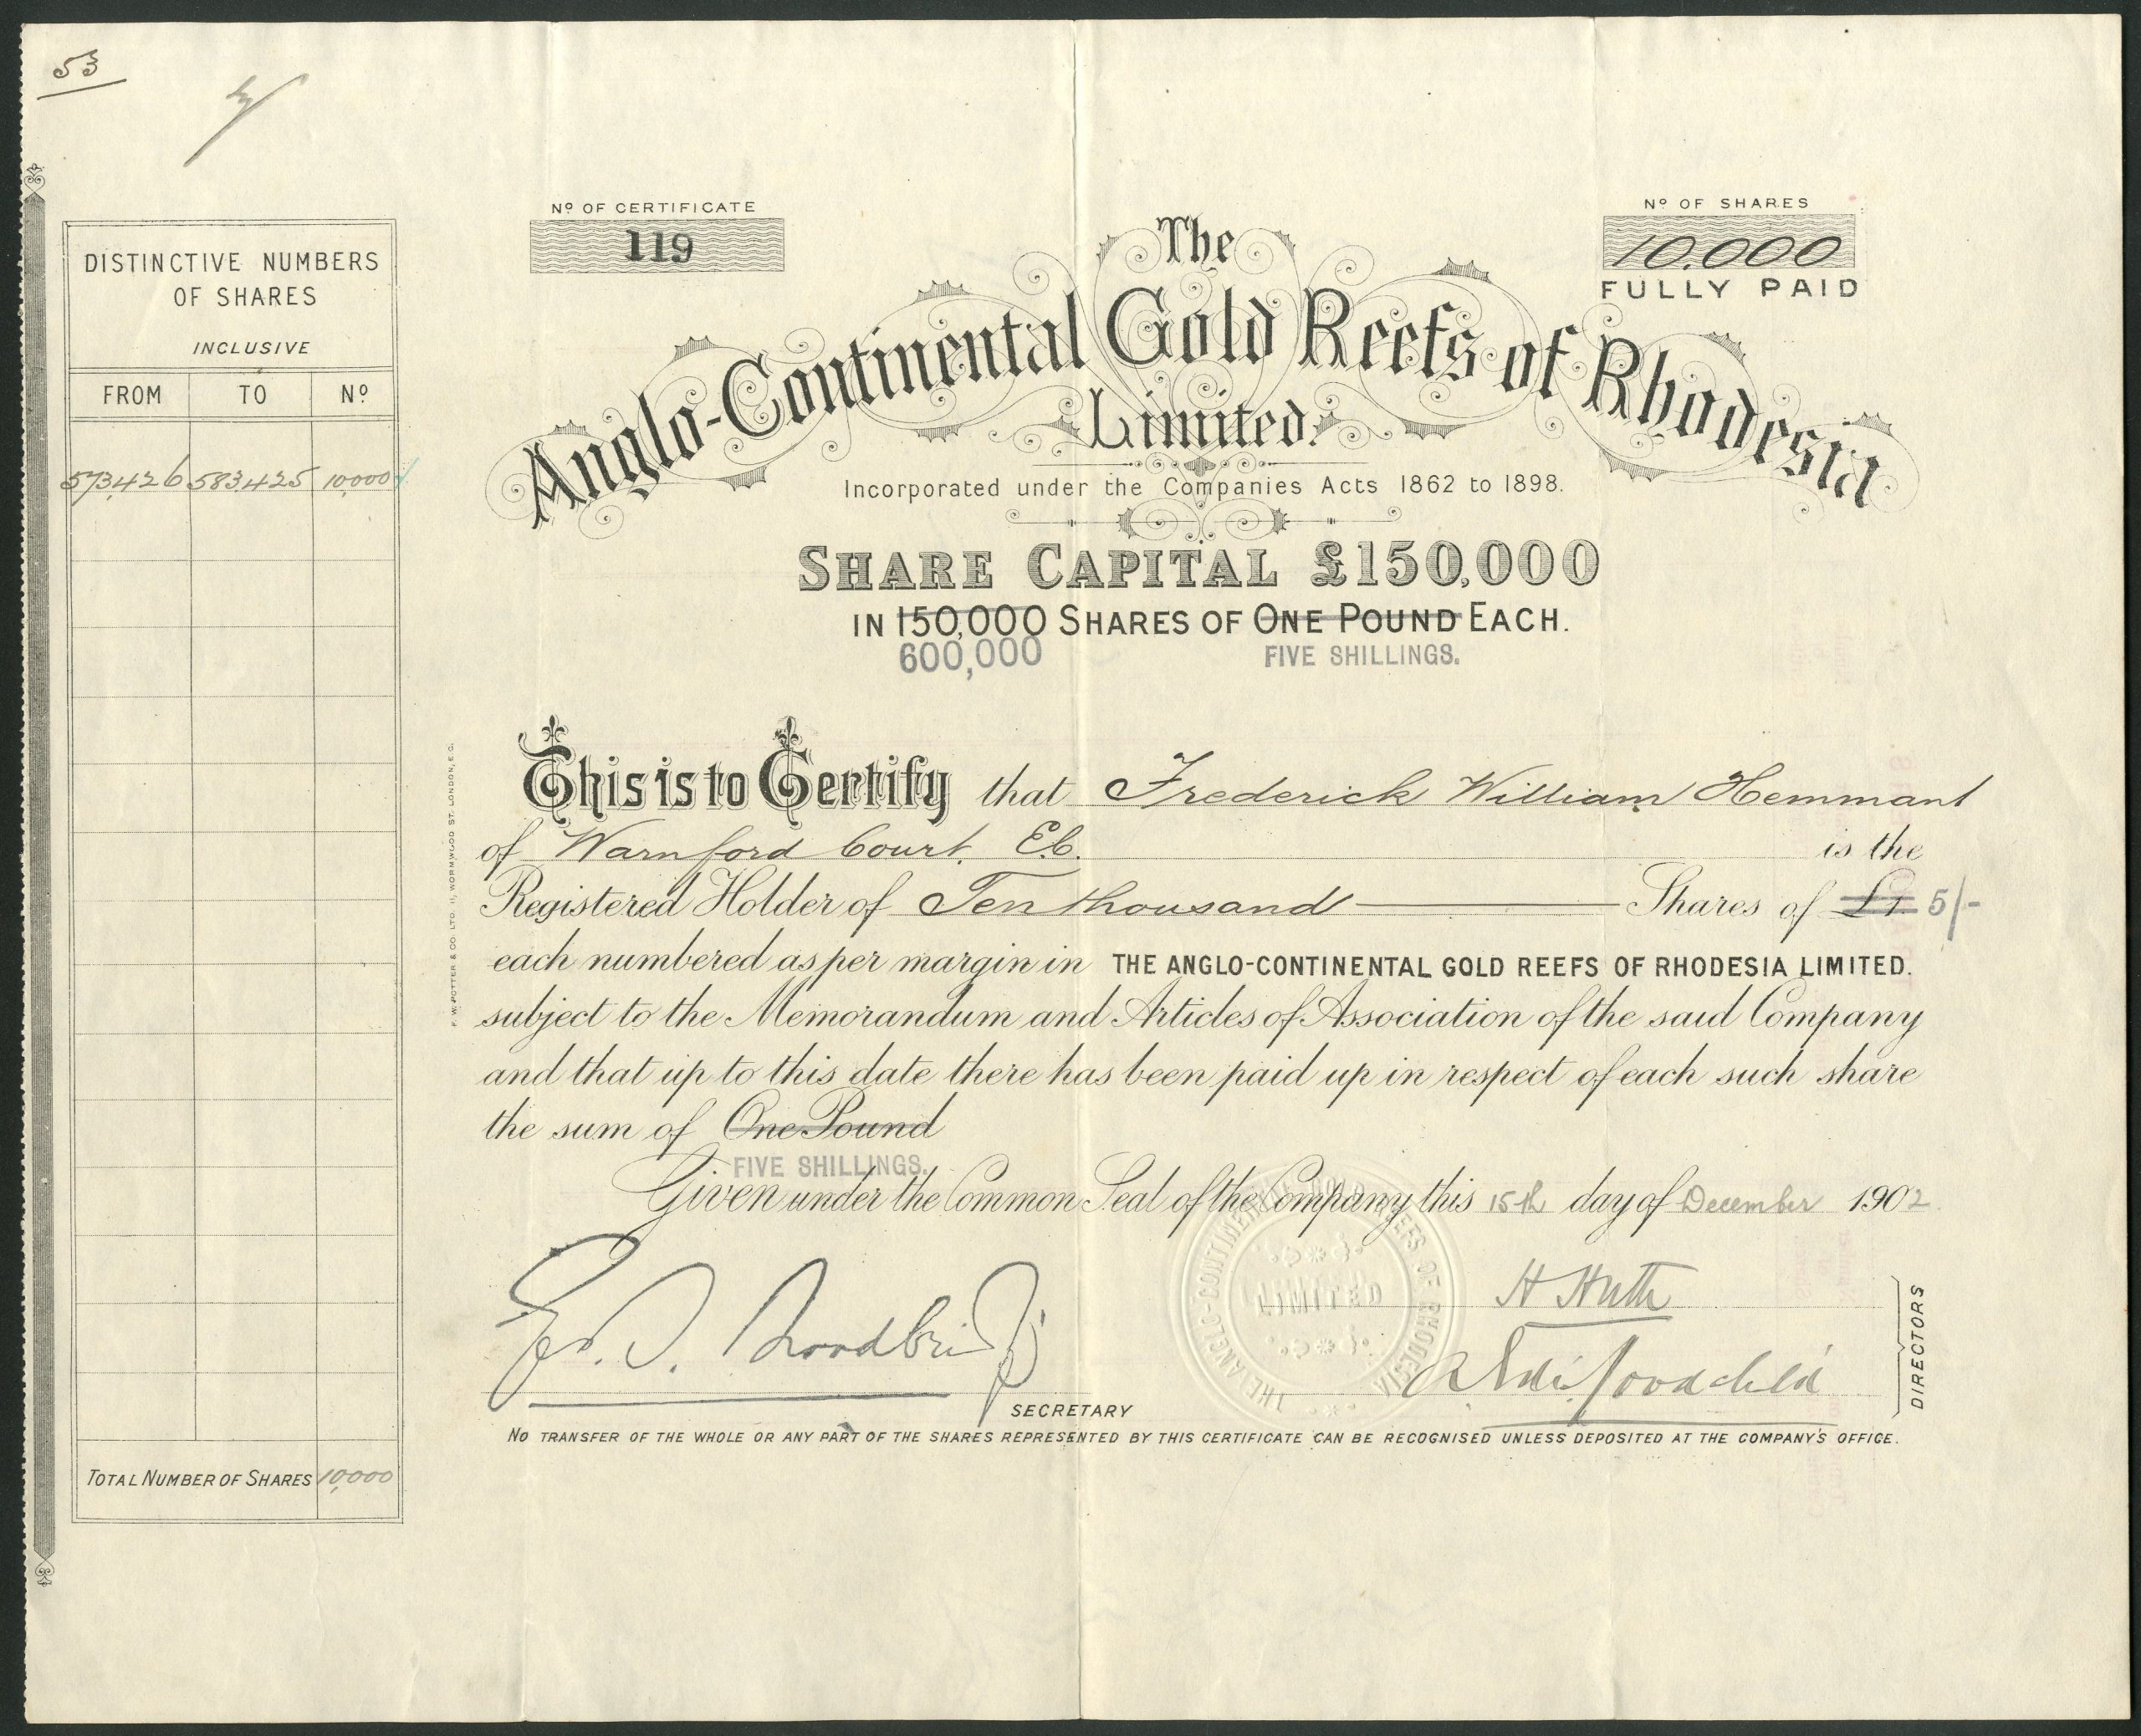 53
Nº OF CERTIFICATE
119
Nº OF SHARES
10,000
FULLY PAID
The
Anglo-Continental Gold Reefs of Rhodesia
Limited.
Incorporated under the Companies Acts 1862 to 1898.
SHARE CAPITAL £150,000
IN 150,000 SHARES OF ONE POUND EACH.
600,000 FIVE SHILLINGS.
DISTINCTIVE NUMBERS
OF SHARES
INCLUSIVE
FROM TO Nº
573,426 583425 10,000
TOTAL NUMBER OF SHARES 10,000
F. W. POTTER & CO. LTD. 11, WORMWOOD ST. LONDON, E.C.
This is to Certify that Frederick William Hemmant
of Warnford Court. E.C. is the
Registered Holder of Ten thousand Shares of £1. 5/-
each numbered as per margin in THE ANGLO-CONTINENTAL GOLD REEFS OF RHODESIA LIMITED.
subject to the Memorandum and Articles of Association of the said Company
and that up to this date there has been paid up in respect of each such share
the sum of One Pound
FIVE SHILLINGS.
Given under the Common Seal of the Company this 15th day of December 1902
THE ANGLO-CONTINENTAL GOLD REEFS OF RHODESIA
LIMITED
H Huth
DIRECTORS
SECRETARY
NO TRANSFER OF THE WHOLE OR ANY PART OF THE SHARES REPRESENTED BY THIS CERTIFICATE CAN BE RECOGNISED UNLESS DEPOSITED AT THE COMPANY'S OFFICE.